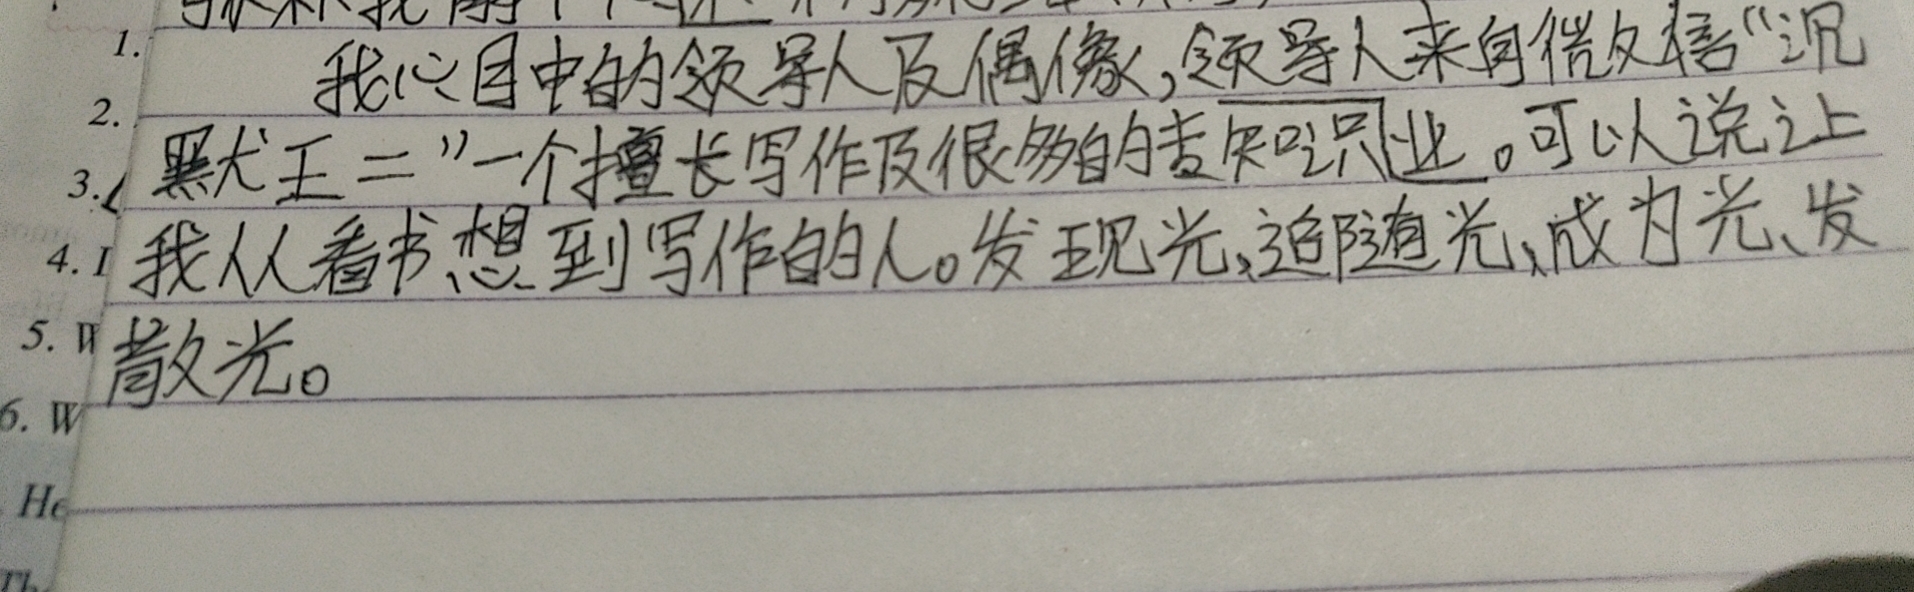 1.
我心目中的领导人及偶像，领导人来自俗文信“沉
2.
默犬王二”一个擅长写作及很多的专知识业。可以说让
3.
我从看书想到写作的人。发现光、追随光、成为光、发
4. I
散光。
5. W
6. W
He
Th